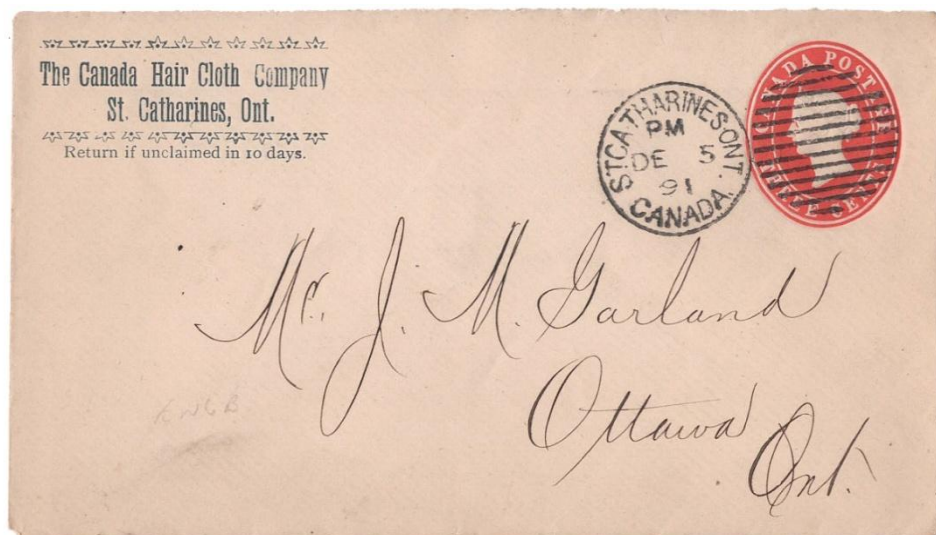 The Canada Hair Cloth Company
St. Catharines, Ont.
Return if unclaimed in 10 days.
ST. CATHARINES ONT.
PM
DE 5
91
CANADA
CANADA POSTAGE
THREE CENTS
Mr. J. M. Garland
Ottawa
Ont.